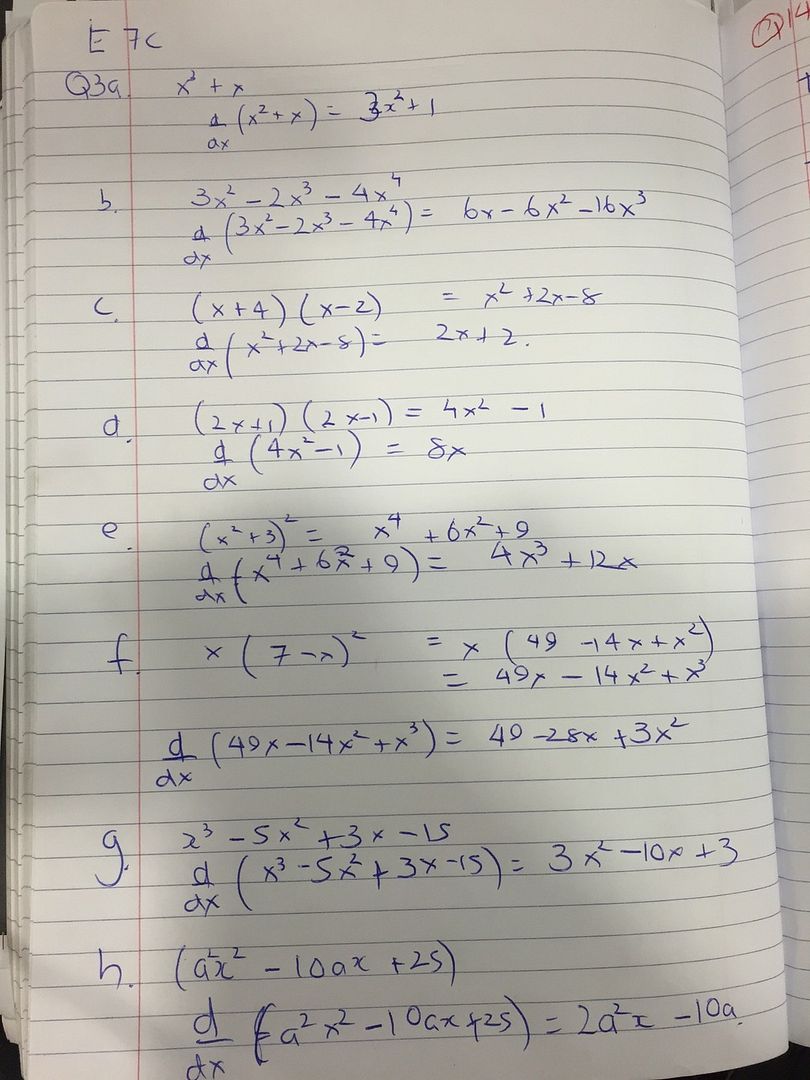 Q14
E 7c
Q3a. x³ + x
d/dx (x² + x) = 3x² + 1
b. 3x² - 2x³ - 4x⁴
d/dx (3x² - 2x³ - 4x⁴) = 6x - 6x² - 16x³
c. (x+4) (x-2) = x² + 2x - 8
d/dx (x² + 2x - 8) = 2x + 2.
d. (2x+1) (2x-1) = 4x² - 1
d/dx (4x² - 1) = 8x
e. (x² + 3)² = x⁴ + 6x² + 9
d/dx (x⁴ + 6x² + 9) = 4x³ + 12x
f. x (7-x)² = x (49 - 14x + x²)
= 49x - 14x² + x³
d/dx (49x - 14x² + x³) = 49 - 28x + 3x²
g. x³ - 5x² + 3x - 15
d/dx (x³ - 5x² + 3x - 15) = 3x² - 10x + 3
h. (a²x² - 10ax + 25)
d/dx (a²x² - 10ax + 25) = 2a²x - 10a